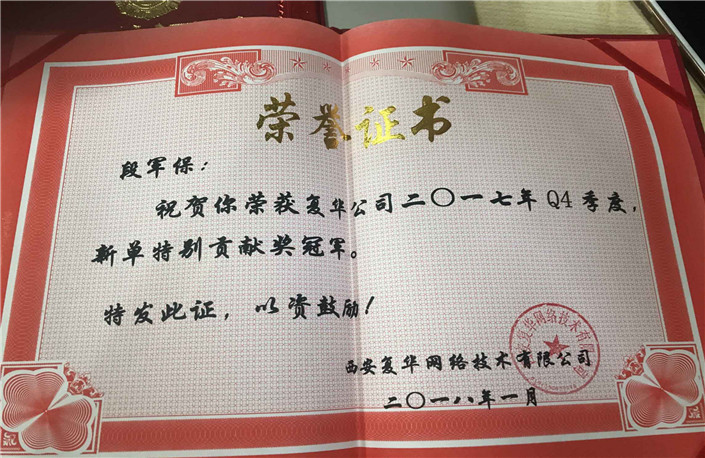 荣誉证书
段军保：
祝贺你荣获复华公司二〇一七年Q4季度，
新单特别贡献奖冠军。
特发此证，以资鼓励！
西安复华网络技术有限公司
二〇一八年一月